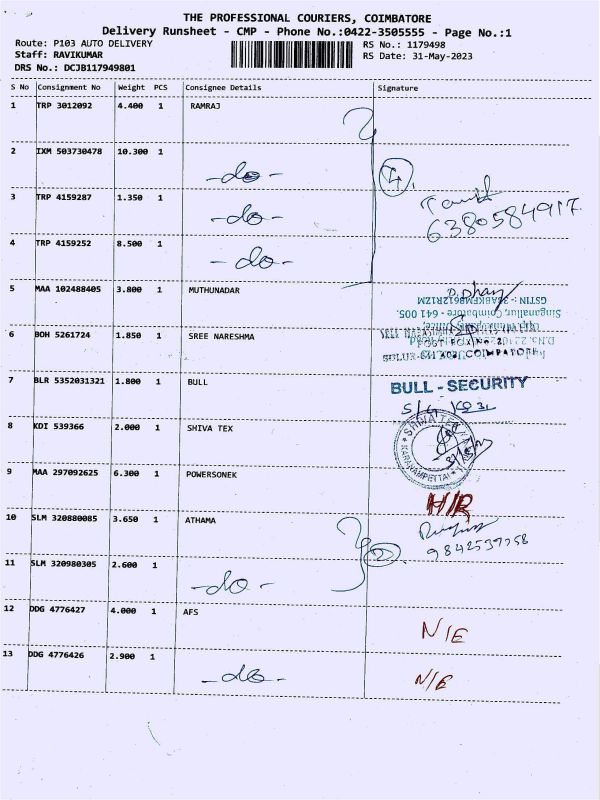 THE PROFESSIONAL COURIERS, COIMBATORE
Delivery Runsheet - CMP - Phone No.:0422-3505555 - Page No.:1
Route: P103 AUTO DELIVERY RS No.: 1179498
Staff: RAVIKUMAR RS Date: 31-May-2023
DRS No.: DCJB117949801
S No Consignment No Weight PCS Consignee Details Signature
1 TRP 3012092 4.400 1 RAMRAJ
2 IXM 503730478 10.300 1
-do- 4.
3 TRP 4159287 1.350 1
-do- 6380584917
4 TRP 4159252 8.500 1
-do-
5 MAA 102488405 3.800 1 MUTHUNADAR
GSTIN :-
Singanallur, Coimbatore - 641 005.
6 BOH 5261724 1.850 1 SREE NARESHMA
COIMBATORE
7 BLR 5352031321 1.800 1 BULL BULL - SECURITY
8 KDI 539366 2.000 1 SHIVA TEX
SHIVA TEX
KARAVAMPETTAI
9 MAA 297092625 6.300 1 POWERSONEK
H/R
10 SLM 320880085 3.650 1 ATHAMA
9842537758
11 SLM 320980305 2.600 1
-do-
12 DDG 4776427 4.000 1 AFS N/E
13 DDG 4776426 2.900 1
-do- N/E